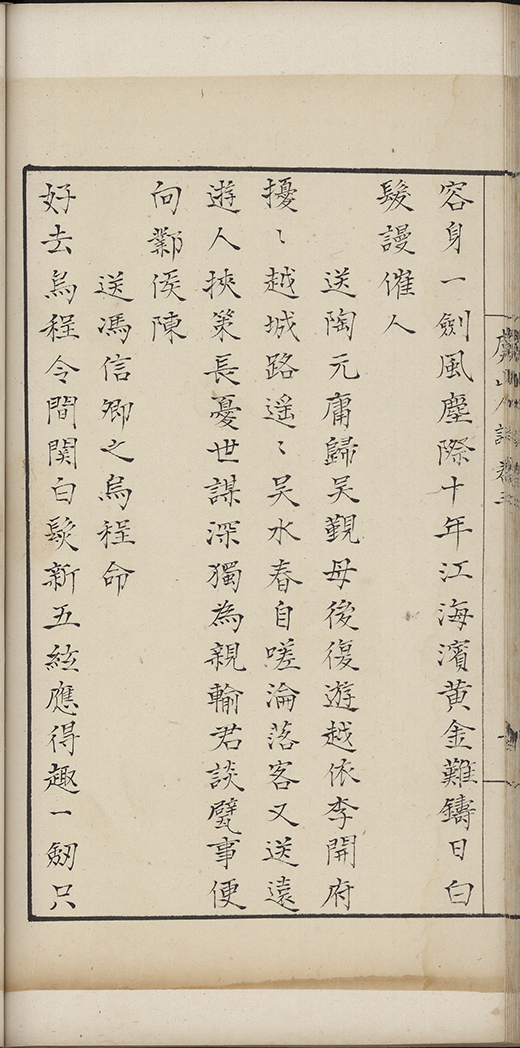 虞山人詩卷三
容身一劍風塵際十年江海濱黄金難鑄日白
髮謾催人
送陶元庸歸吴覲母後復遊越依李開府
擾〻越城路遥〻吴水春自嗟淪落客又送遠
遊人挾策長憂世謀深獨為親輸君談甓事便
向鄴侯陳
送馮信卿之烏程命
好去烏程令間関白髮新五絃應得趣一劒只